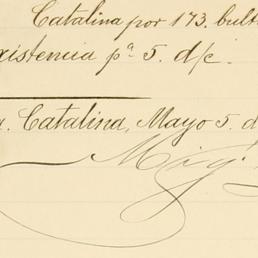 Catalina por 173. bult
xistencia pª 5. d/c.
. Catalina, Mayo 5. d
Mig